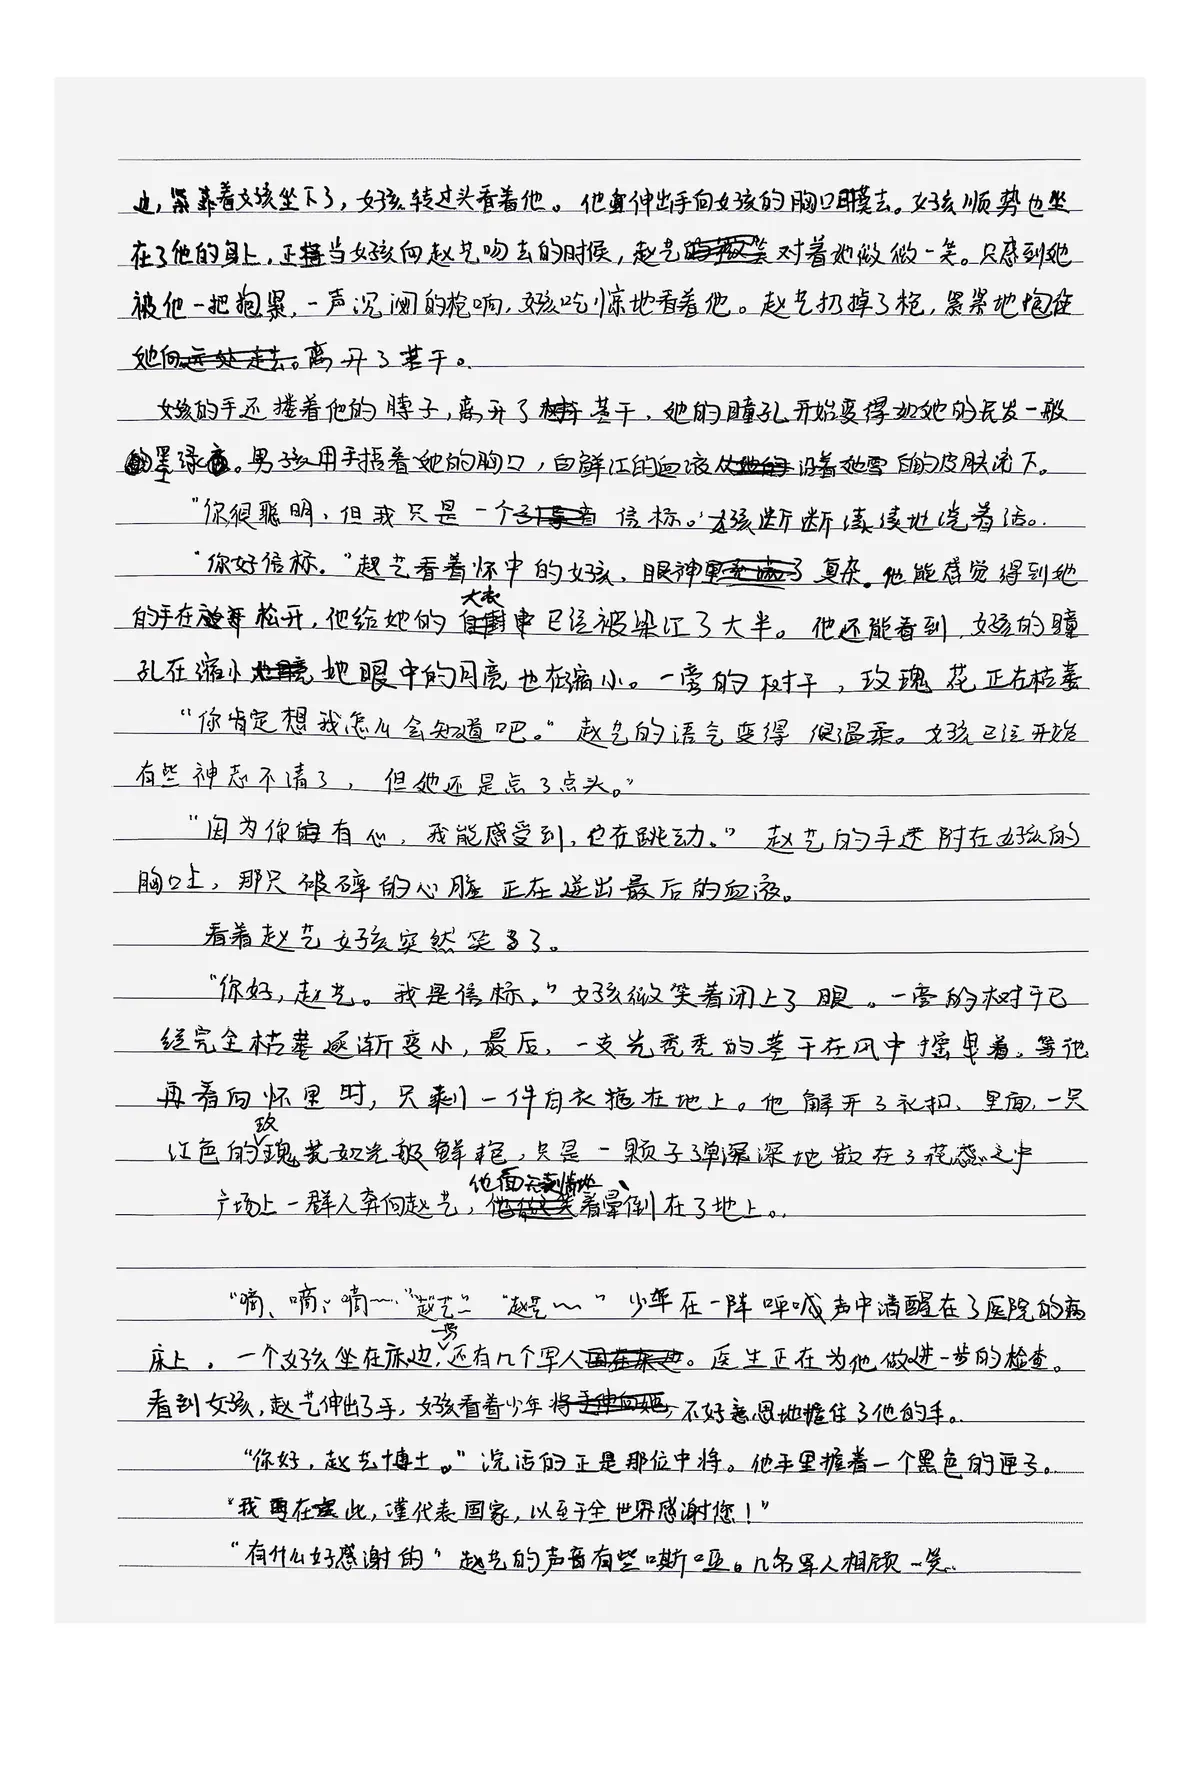 边，紧靠着女孩坐下了，女孩转过头看着他。他伸出手向女孩的胸口摸去。女孩顺势也坐
在了他的身上，正当女孩向赵艺吻去的时候，赵艺对着她微微一笑。只感到她
被他一把抱紧，一声沉闷的枪响，女孩吃惊地看着他。赵艺扔掉了枪，紧紧地抱住
她向离开了茎干。
女孩的手还搂着他的脖子，离开了茎干，她的瞳孔开始变得如她的长发一般
的墨绿。男孩用手捂着她的胸口，白鲜红的血液沿着她雪白的皮肤流下。
“你很聪明，但我只是一个信标。”女孩断断续续地说着话。
“你好信标。”赵艺看着怀中的女孩，眼神复杂。他能感觉得到她
的手在松开，他给她的大衣已经被染红了大半。他还能看到，女孩的瞳
孔在缩小她眼中的月亮也在缩小。一旁的树干，玫瑰花正在枯萎
“你肯定想我怎么会知道吧。”赵艺的语气变得很温柔。女孩已经开始
有些神志不清了，但她还是点了点头。”
“因为你有心，我能感受到，它在跳动。”赵艺的手还附在女孩的
胸口上，那只破碎的心脏正在迸出最后的血液。
看着赵艺女孩突然笑了。
“你好，赵艺。我是信标。”女孩微笑着闭上了眼。一旁的树干已
经完全枯萎逐渐变小，最后，一支光秃秃的茎干在风中摇曳着。等他
再看向怀里时，只剩一件白衣拖在地上。他解开了衣扣，里面，一只
红色的玫瑰花如先般鲜艳，只是一颗子弹深深地嵌在了花蕊之中
广场上一群人奔向赵艺，他面无表情地、着晕倒在了地上。

“嘀、嘀、嘀……“赵艺~” “赵艺~~” 少年在一阵呼喊声中清醒在了医院的病
床上。一个女孩坐在床边，一旁还有几个军人。医生正在为他做进一步的检查。
看到女孩，赵艺伸出了手，女孩看着少年将，不好意思地握住了他的手。
“你好，赵艺博士。”说话的正是那位中将。他手里握着一个黑色的匣子。
“我在此，谨代表国家，以至于全世界感谢您！”
“有什么好感谢的”赵艺的声音有些嘶哑。几名军人相顾一笑.